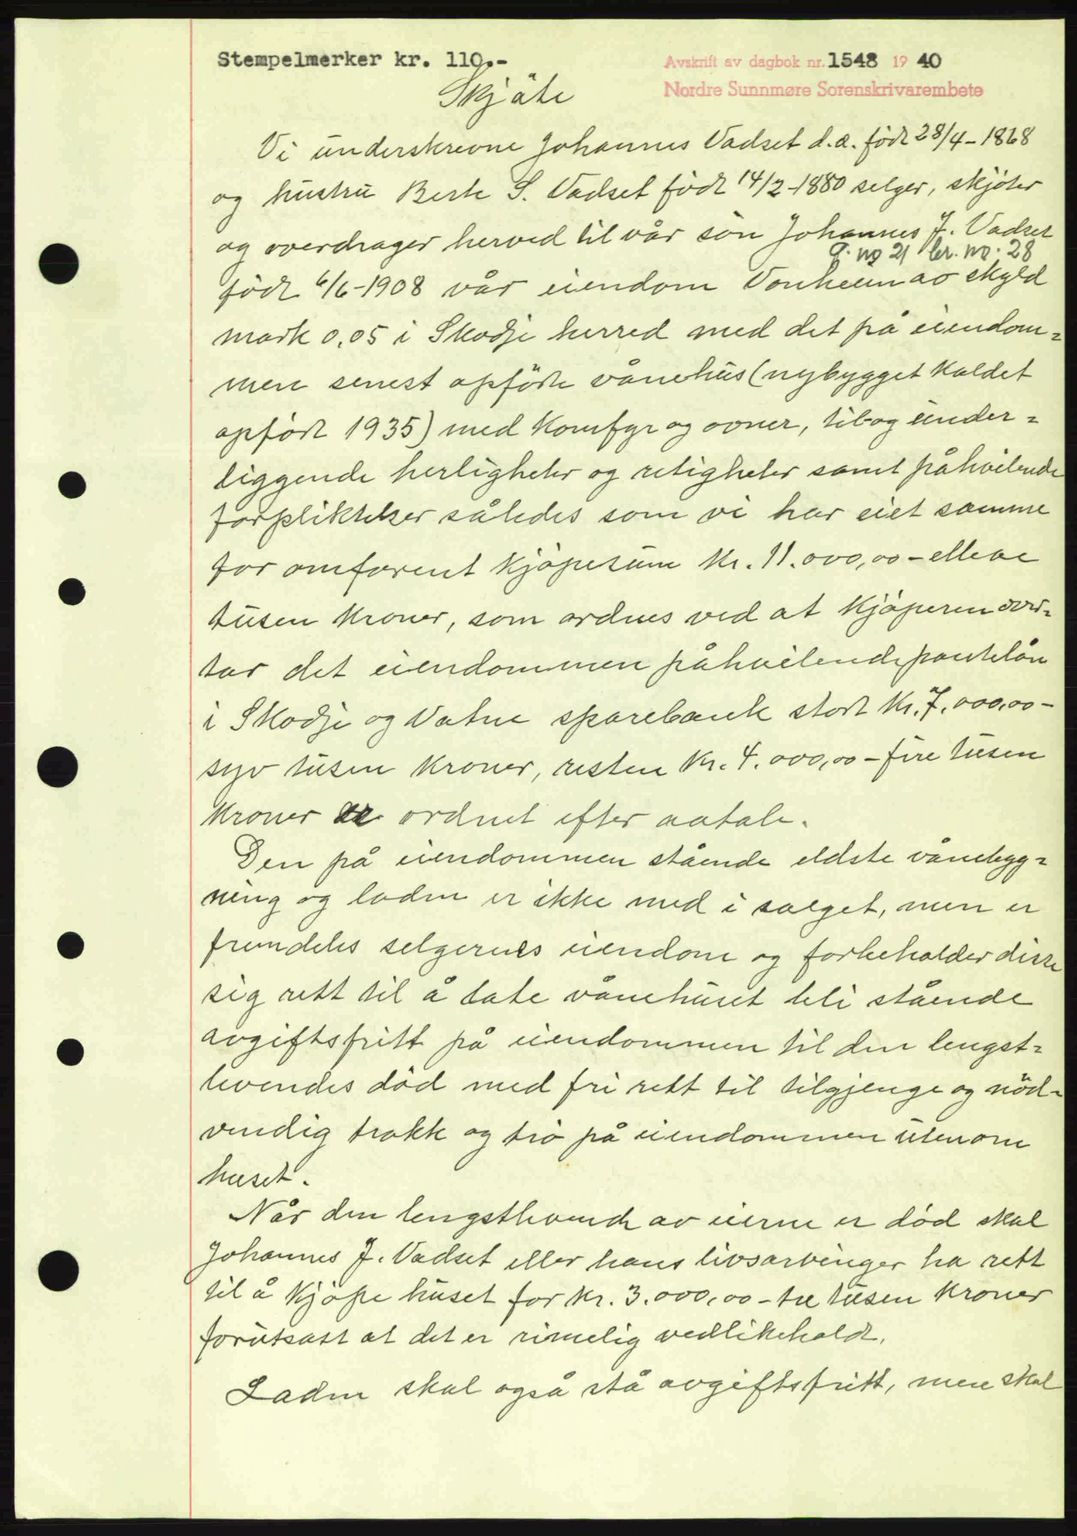 Stempelmerker kr. 110.-
Avskrift av dagbok nr. 1548 1940
Nordre Sunnmøre Sorenskrivarembete
Skjöte
Vi underskrevne Johannes Vadset d.æ. född 28/4-1868
og hustru Berte S. Vadset född 14/2-1880 selger, skjöter
og overdrager herved til vår sön Johannes J. Vadset
g. no 21 br. no. 28
född 6/6-1908 vår eiendom Vonheim av skyld
mark 0,05 i Skodje herred med det på eiendom=
men senest opförte vånehus (nybygget kaldet
opfört 1935) med komfyr og ovner, til og under=
liggende herligheter og retigheter samt påhvilende
forpliktelser således som vi har eiet samme
for omforent kjöpesum kr. 11.000,00 - elleve
tusen kroner, som ordnes ved at kjöperen over=
tar det eiendommen påhvilende pantelån
i Skodje og Vatne sparebank stort kr. 7.000,00 -
syv tusen kroner, resten kr. 4.000,00 - fire tusen
kroner er ordnet efter avtale.
Den på eiendommen stående eldste vånebygg=
ning og laden er ikke med i salget, men er
fremdeles selgernes eiendom og forbeholder disse
sig rett til å late vånehuset bli stående
avgiftsfritt på eiendommen til den lengst=
levendes död med fri rett til tilgjenge og nöd=
vendig trakk og trö på eiendommen utenom
huset.
Når den lengstlevende av eierne er död skal
Johannes J. Vadset eller hans livsarvinger ha rett
til å kjöpe huset for kr. 3.000,00 - tre tusen kroner
forutsatt at det er rimelig vedlikeholdt.
Laden skal også stå avgiftsfritt, men skal